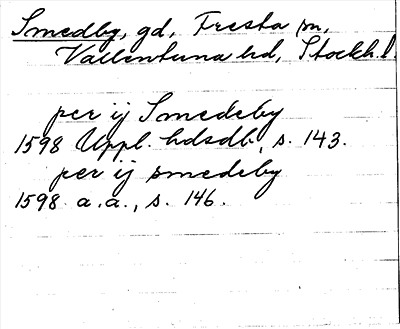 Smedby, gd, Fresta sn,
Vallentuna hd, Stockh. l.
per ij Smedeby
1598 Uppl. hdsdb, s. 143.
per ij smedeby
1598 a.a., s. 146.